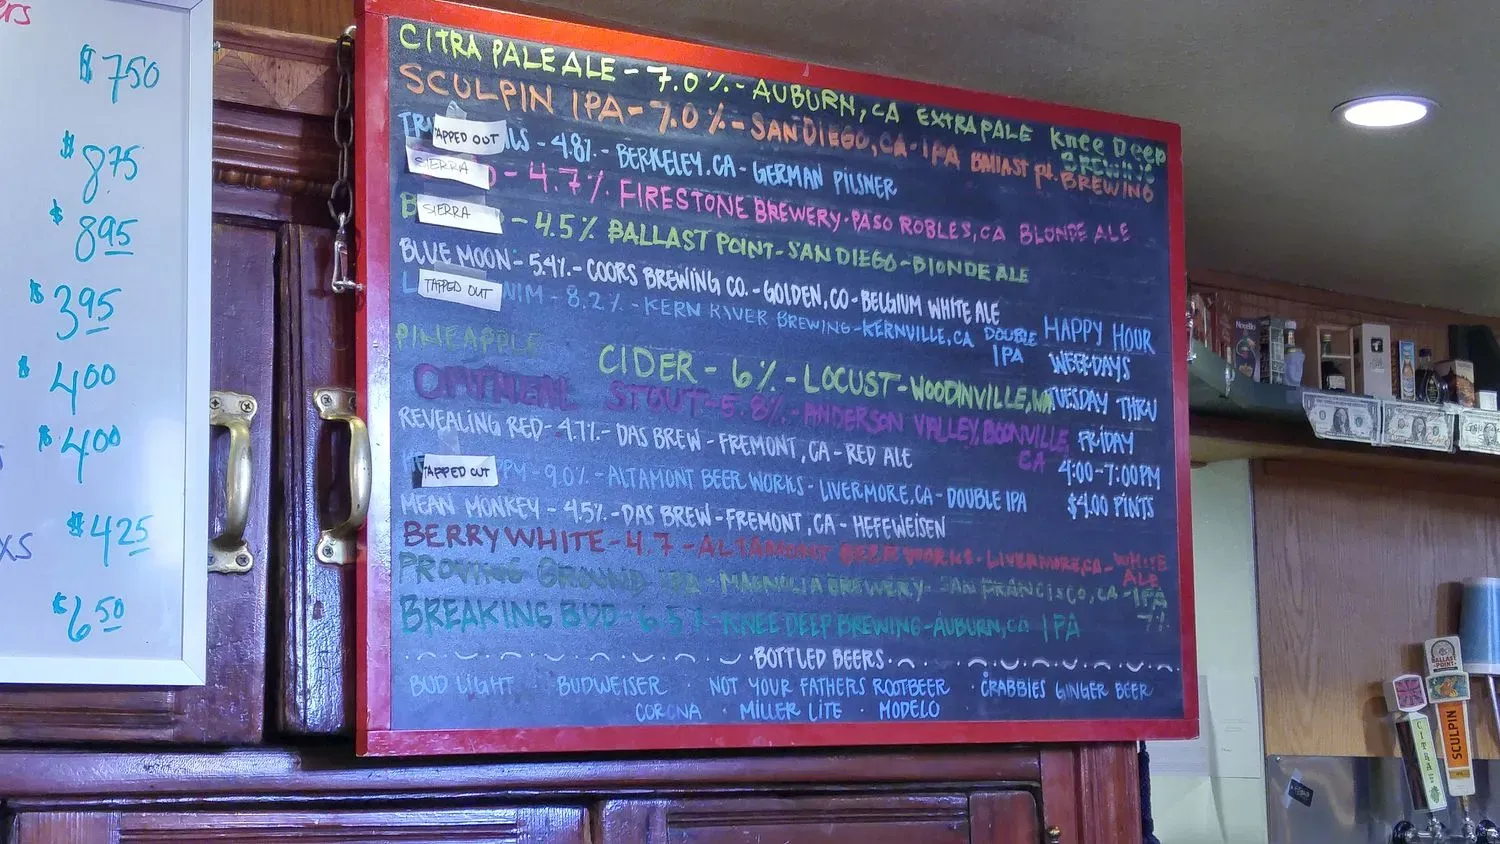 ers
$750
$875
$895
$395
$400
$400
$425
$650
xs
CITRA PALE ALE - 7.0% - AUBURN, CA EXTRA PALE Knee Deep BREWING
SCULPIN IPA - 7.0% - SAN DIEGO, CA - IPA BALLAST Pt. BREWING
TAPPED OUT LS - 4.8% - BERKELEY, CA - GERMAN PILSNER
SIERRA - 4.7% FIRESTONE BREWERY - PASO ROBLES, CA BLONDE ALE
SIERRA - 4.5% BALLAST POINT - SAN DIEGO - BLONDE ALE
BLUE MOON - 5.4% - COORS BREWING CO. - GOLDEN, CO - BELGIUM WHITE ALE
TAPPED OUT NIM - 8.2% - KERN RIVER BREWING - KERNVILLE, CA DOUBLE IPA
PINEAPPLE CIDER - 6% - LOCUST - WOODINVILLE, WA
OATMEAL STOUT - 5.8% - ANDERSON VALLEY, BOONVILLE, CA
REVEALING RED - 4.7% - DAS BREW - FREMONT, CA - RED ALE
TAPPED OUT PM - 9.0% - ALTAMONT BEER WORKS - LIVERMORE, CA - DOUBLE IPA
MEAN MONKEY - 4.5% - DAS BREW - FREMONT, CA - HEFEWEISEN
BERRY WHITE - 4.7 - ALTAMONT BEER WORKS - LIVERMORE, CA - WHITE ALE
PROVING GROUND IPA - MAGNOLIA BREWERY - SAN FRANCISCO, CA - IPA 7%
BREAKING BUD - 6.5% KNEE DEEP BREWING - AUBURN, CA IPA
HAPPY HOUR
WEEKDAYS
TUESDAY THRU
FRIDAY
4:00-7:00PM
$4.00 PINTS
BOTTLED BEERS
BUD LIGHT · BUDWEISER · NOT YOUR FATHERS ROOTBEER · CRABBIES GINGER BEER
CORONA · MILLER LITE · MODELO
BALLAST POINT
CITRA
SCULPIN